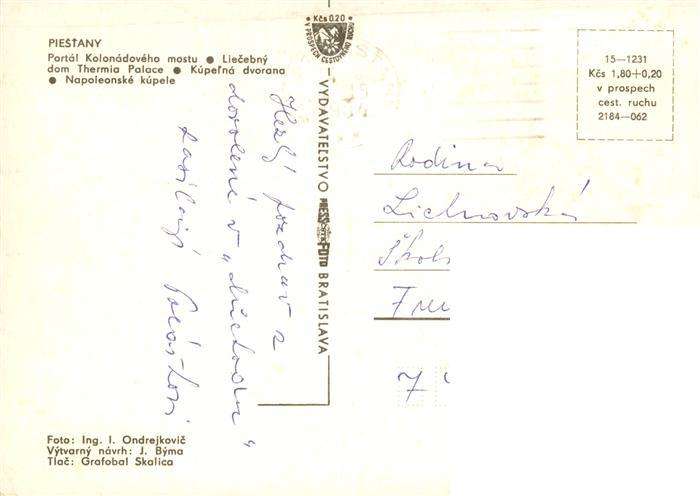 PIEŠŤANY
Portál Kolonádového mostu ● Liečebný
dom Thermia Palace ● Kúpeľná dvorana
● Napoleonské kúpele
Kčs 0.20
V PROSPECH CESTOVNÉHO RUCHU
VYDAVATEĽSTVO PRESSFOTO BRATISLAVA
15—1231
Kčs 1,80+0,20
v prospech
cest. ruchu
2184—062
Hezký pozdrav z
dovolené v „
zasílají
Rodina
Lichnovská
Škols
7
Foto: Ing. I. Ondrejkovič
Výtvarný návrh: J. Býma
Tlač: Grafobal Skalica